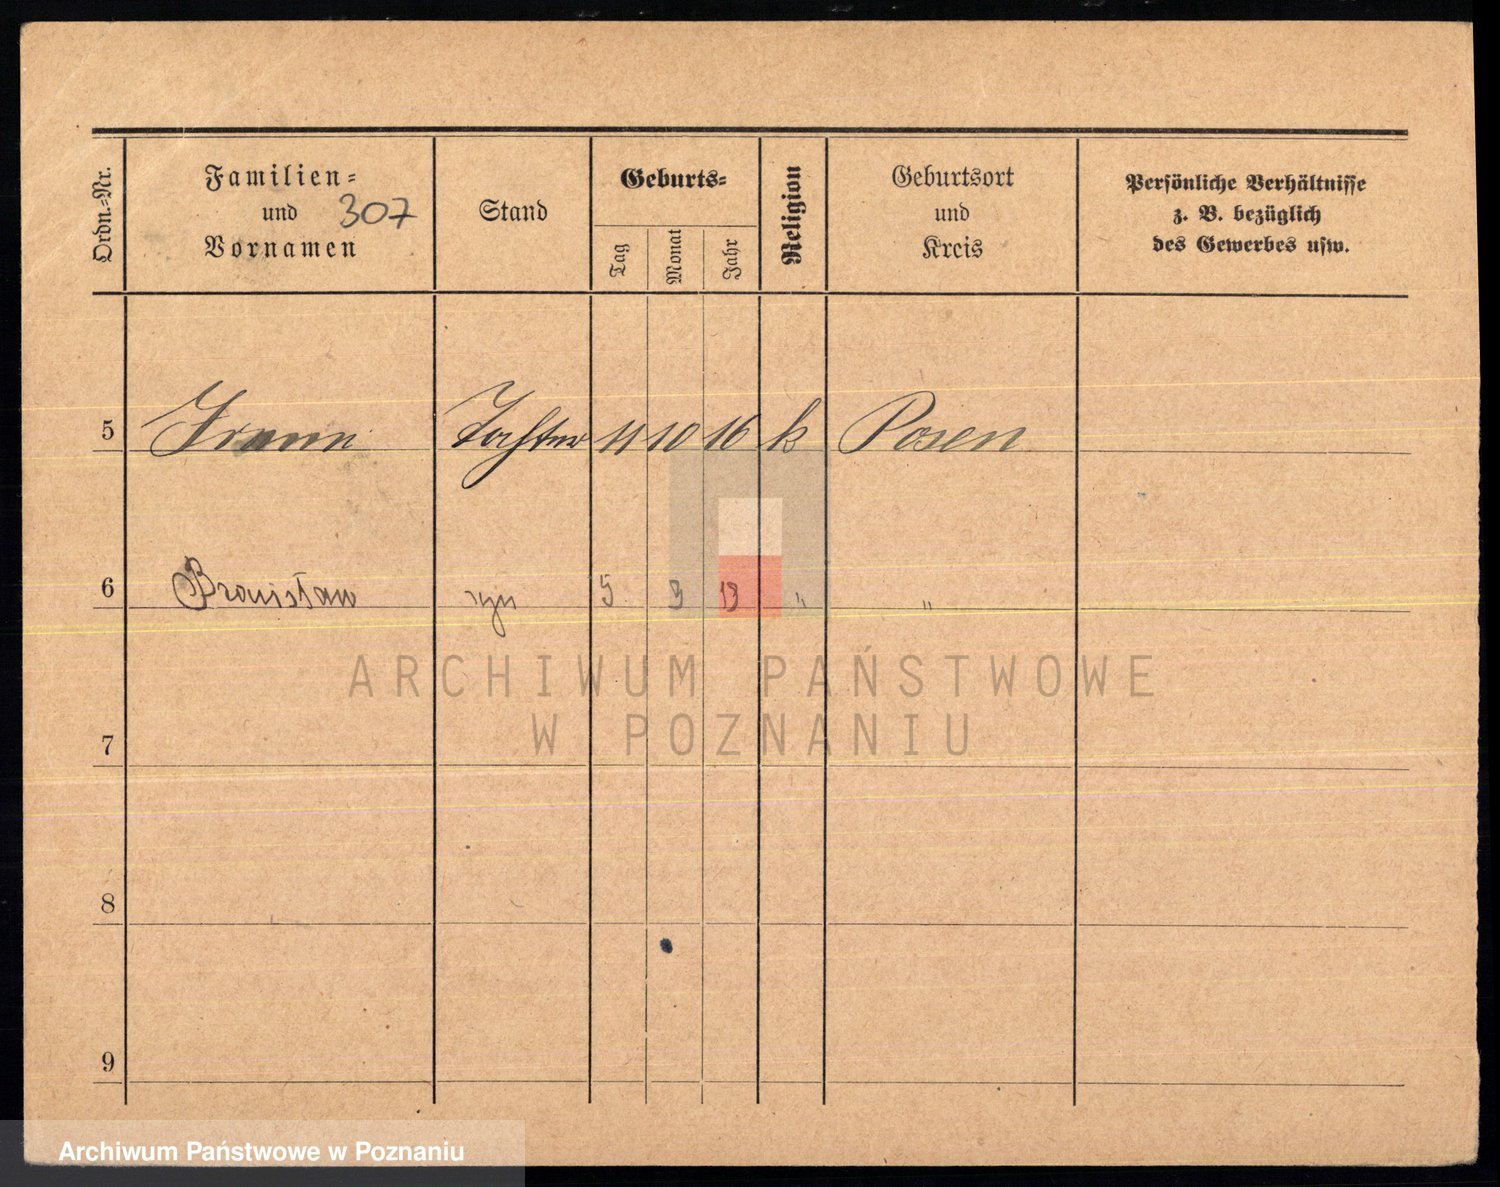 Ordn.-Nr.
Familien-
und 307
Vornamen
Stand
Geburts-
Tag
Monat
Jahr
Religion
Geburtsort
und
Kreis
Persönliche Verhältnisse
z. B. bezüglich
des Gewerbes usw.
5 Tochter 11 10 16 k Posen
6 Bronisław syn 5 9 19 " "
ARCHIWUM PAŃSTWOWE
W POZNANIU
7
8
9
Archiwum Państwowe w Poznaniu